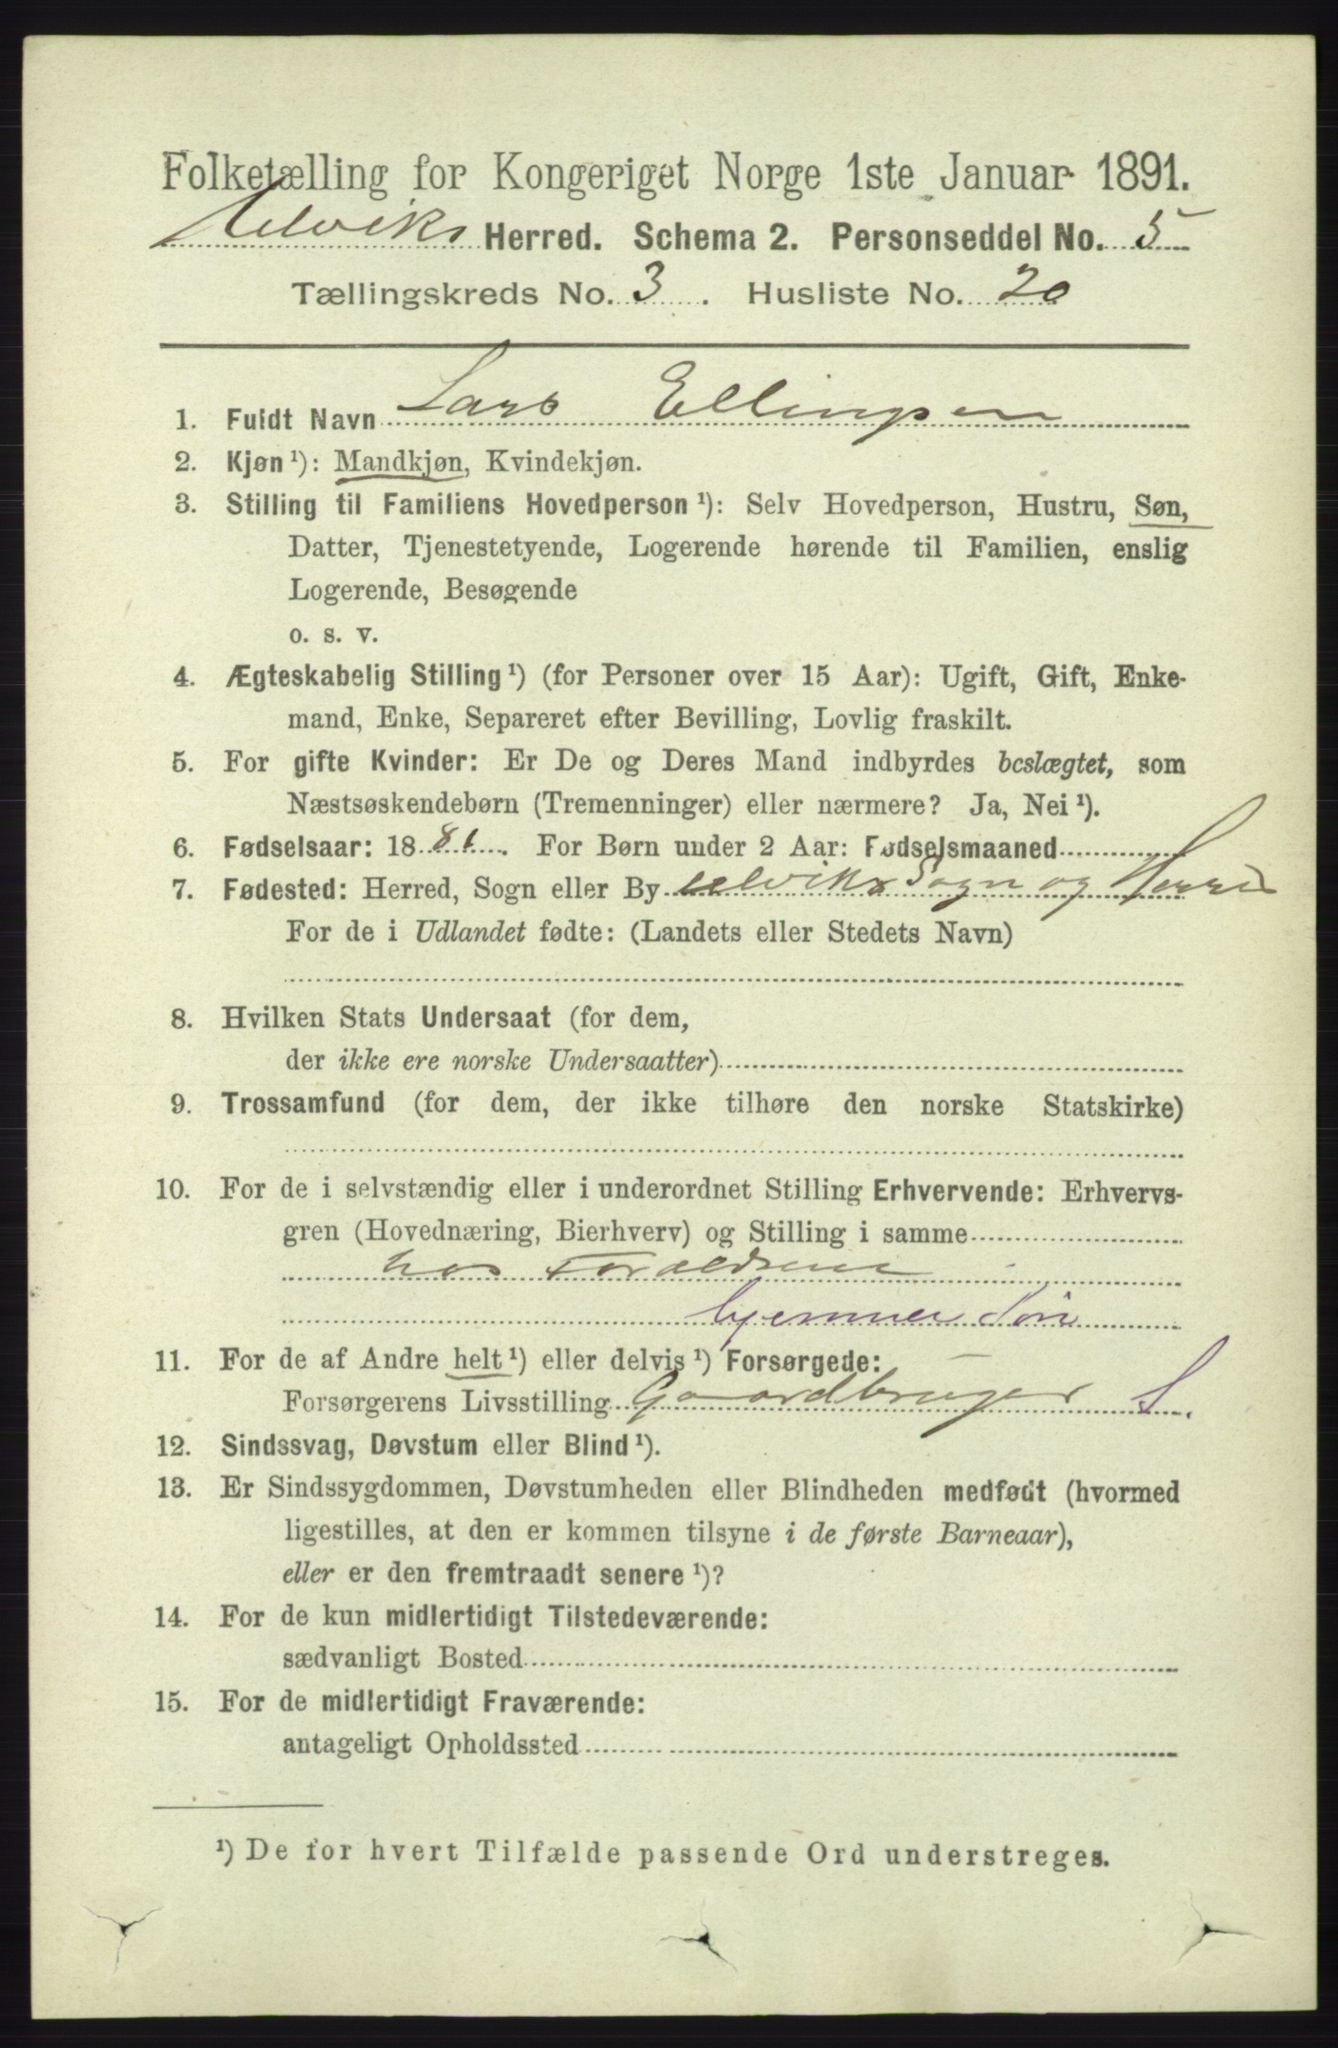 Folketælling for Kongeriget Norge 1ste Januar 1891.
Ulviks Herred. Schema 2. Personseddel No. 5
Tællingskreds No. 3. Husliste No. 20
1. Fuldt Navn Lars Ellingsen
2. Kjøn ¹): Mandkjøn, Kvindekjøn.
3. Stilling til Familiens Hovedperson ¹): Selv Hovedperson, Hustru, Søn,
Datter, Tjenestetyende, Logerende hørende til Familien, enslig
Logerende, Besøgende
o. s. v.
4. Ægteskabelig Stilling ¹) (for Personer over 15 Aar): Ugift, Gift, Enke-
mand, Enke, Separeret efter Bevilling, Lovlig fraskilt.
5. For gifte Kvinder: Er De og Deres Mand indbyrdes beslægtet, som
Næstsøskendebørn (Tremenninger) eller nærmere? Ja, Nei ¹).
6. Fødselsaar: 1881. For Børn under 2 Aar: Fødselsmaaned
7. Fødested: Herred, Sogn eller By Ulviks Sogn og Herred
For de i Udlandet fødte: (Landets eller Stedets Navn)
8. Hvilken Stats Undersaat (for dem,
der ikke ere norske Undersaatter)
9. Trossamfund (for dem, der ikke tilhøre den norske Statskirke)
10. For de i selvstændig eller i underordnet Stilling Erhvervende: Erhvervs-
gren (Hovednæring, Bierhverv) og Stilling i samme
hos Forældrene
hjemmev. Søn
11. For de af Andre helt ¹) eller delvis ¹) Forsørgede:
Forsørgerens Livsstilling Gaardbruger S.
12. Sindssvag, Døvstum eller Blind ¹).
13. Er Sindssygdommen, Døvstumheden eller Blindheden medfødt (hvormed
ligestilles, at den er kommen tilsyne i de første Barneaar),
eller er den fremtraadt senere ¹)?
14. For de kun midlertidigt Tilstedeværende:
sædvanligt Bosted
15. For de midlertidigt Fraværende:
antageligt Opholdssted
¹) De for hvert Tilfælde passende Ord understreges.